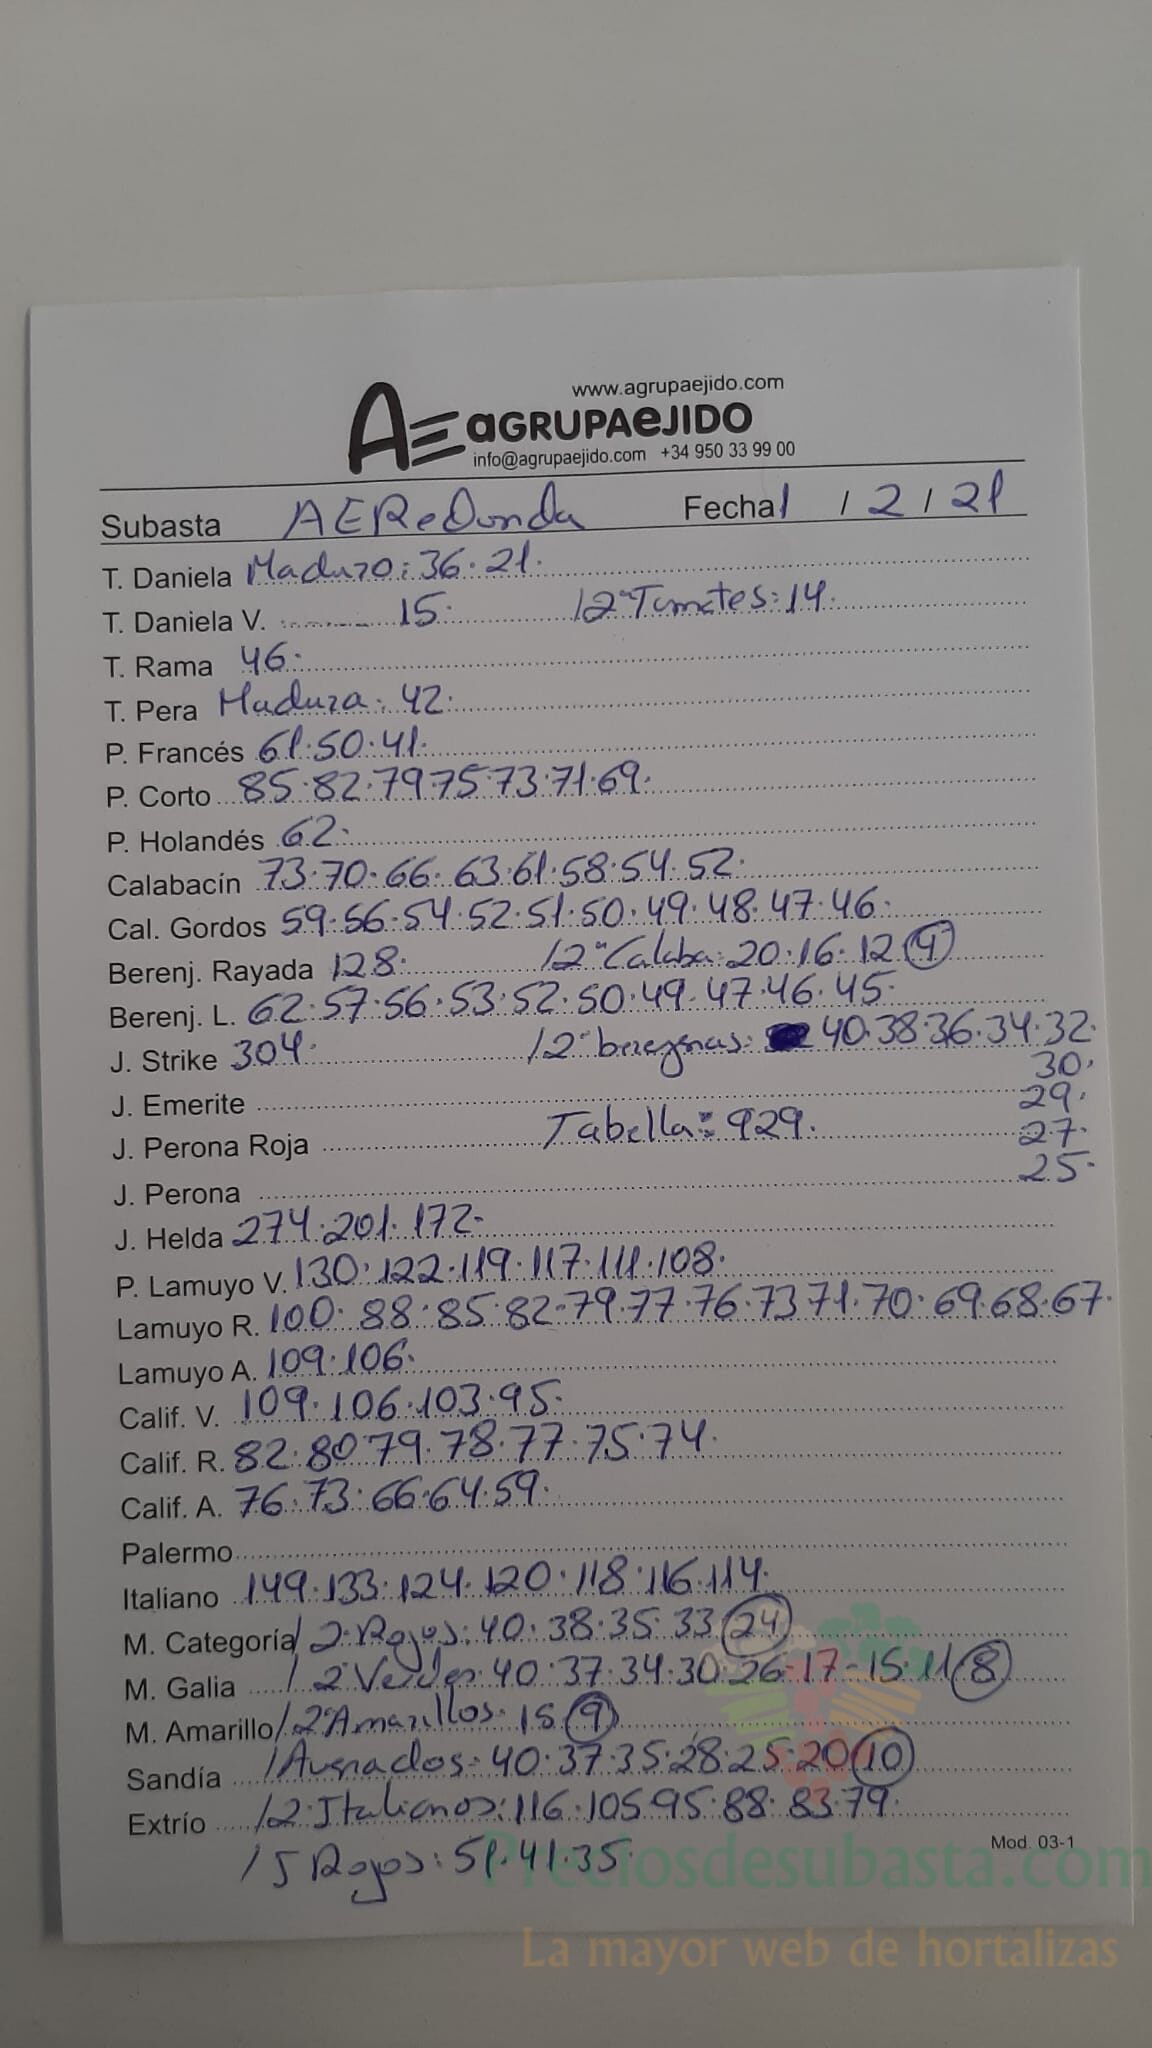 www.agrupaejido.com
AE aGRUPAeJIDO
info@agrupaejido.com +34 950 33 99 00
Subasta AEReDonda Fecha 1 / 2 / 21
T. Daniela Maduro: 36. 21.
T. Daniela V. 15. /2ª Tomates: 14.
T. Rama 46.
T. Pera Madura: 42.
P. Francés 61. 50. 41.
P. Corto 85. 82. 79. 75. 73. 71. 69.
P. Holandés 62.
Calabacín 73. 70. 66. 63. 61. 58. 54. 52.
Cal. Gordos 59. 56. 54. 52. 51. 50. 49. 48. 47. 46.
Berenj. Rayada 128. /2ª Calaba: 20. 16. 12
Berenj. L. 62. 57. 56. 53. 52. 50. 49. 47. 46. 45.
J. Strike 304. /2ª berejenas: 40. 38. 36. 34. 32.
30.
J. Emerite 29.
J. Perona Roja Tabella: 929. 27.
J. Perona 25.
J. Helda 274. 201. 172.
P. Lamuyo V. 130. 122. 119. 117. 111. 108.
Lamuyo R. 100. 88. 85. 82-79. 77. 76. 73 71. 70. 69. 68. 67.
Lamuyo A. 109. 106.
Calif. V. 109. 106. 103. 95.
Calif. R. 82. 80 79. 78. 77. 75. 74.
Calif. A. 76. 73. 66. 64. 59.
Palermo
Italiano 149. 133. 124. 120. 118. 116. 114.
M. Categoría /2ª Rojos: 40. 38. 35. 33 24
M. Galia /2ª Verdes: 40. 37. 34. 30. 26-17-15. 11 8
M. Amarillo /2ª Amarillos: 15 9
Sandía /Asurados: 40. 37. 35. 28. 25. 20 10
Extrío /2ª Italianos: 116. 105 95. 88. 83. 79.
/5 Rojos: 51. 41. 35.
Mod. 03-1
Preciosdesubasta.com
La mayor web de hortalizas